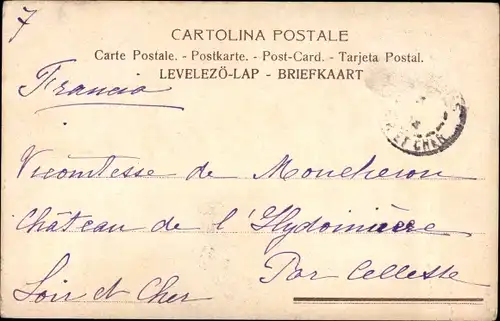 7
CARTOLINA POSTALE
Carte Postale. - Postkarte. - Post-Card. - Tarjeta Postal.
LEVELEZÖ-LAP - BRIEFKAART
Francia
ET CHER
Vicomtesse de Moucheron
Château de l'Hydouinière
Par Celleste
Loir et Cher